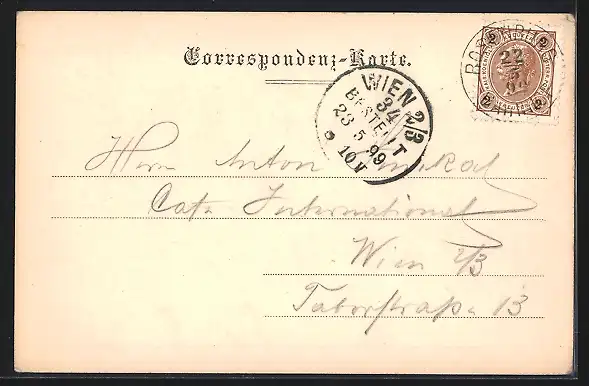 Correspondenz-Karte.
22
5
2
2
2
WIEN 2/3
34
BESTELLT
23 5 99
10 V
Herrn Anton
Cafe International
Wien 2/3
Taborstraße 13